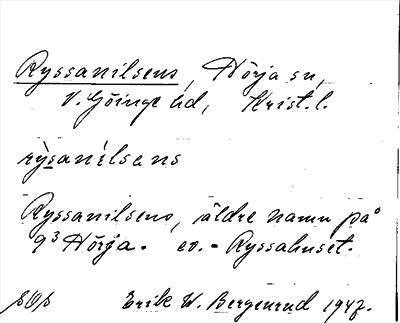 Ryssanilsens, Hörja sn,
V. Göinge hd, Krist. l.
rỳsanílsens
Ryssanilsens, äldre namn på
9³ Hörja. ev. = Ryssahuset.
Erik W. Bergenrud 1947.